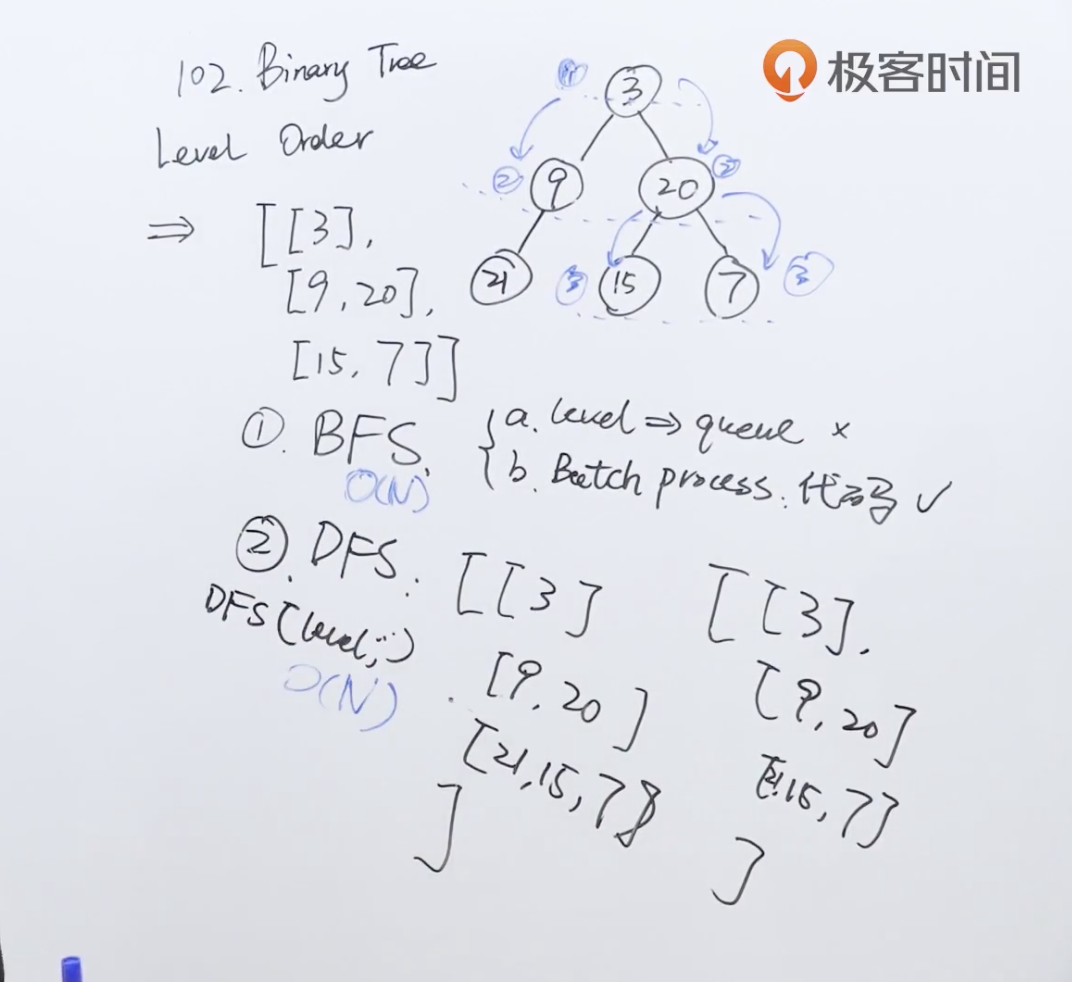 极客时间
102. Binary Tree
Level Order
3
9 20
21 15 7
① ② ② ③ ③
⇒ [[3],
[9,20],
[15,7]]
①. BFS.
O(N)
a. level ⇒ queue ×
b. Batch process. 代码 ✓
②. DFS.
DFS(level, )
O(N)
[[3]
[9,20]
[21,15,7]
]
[[3],
[9,20]
[21,15,7]
]